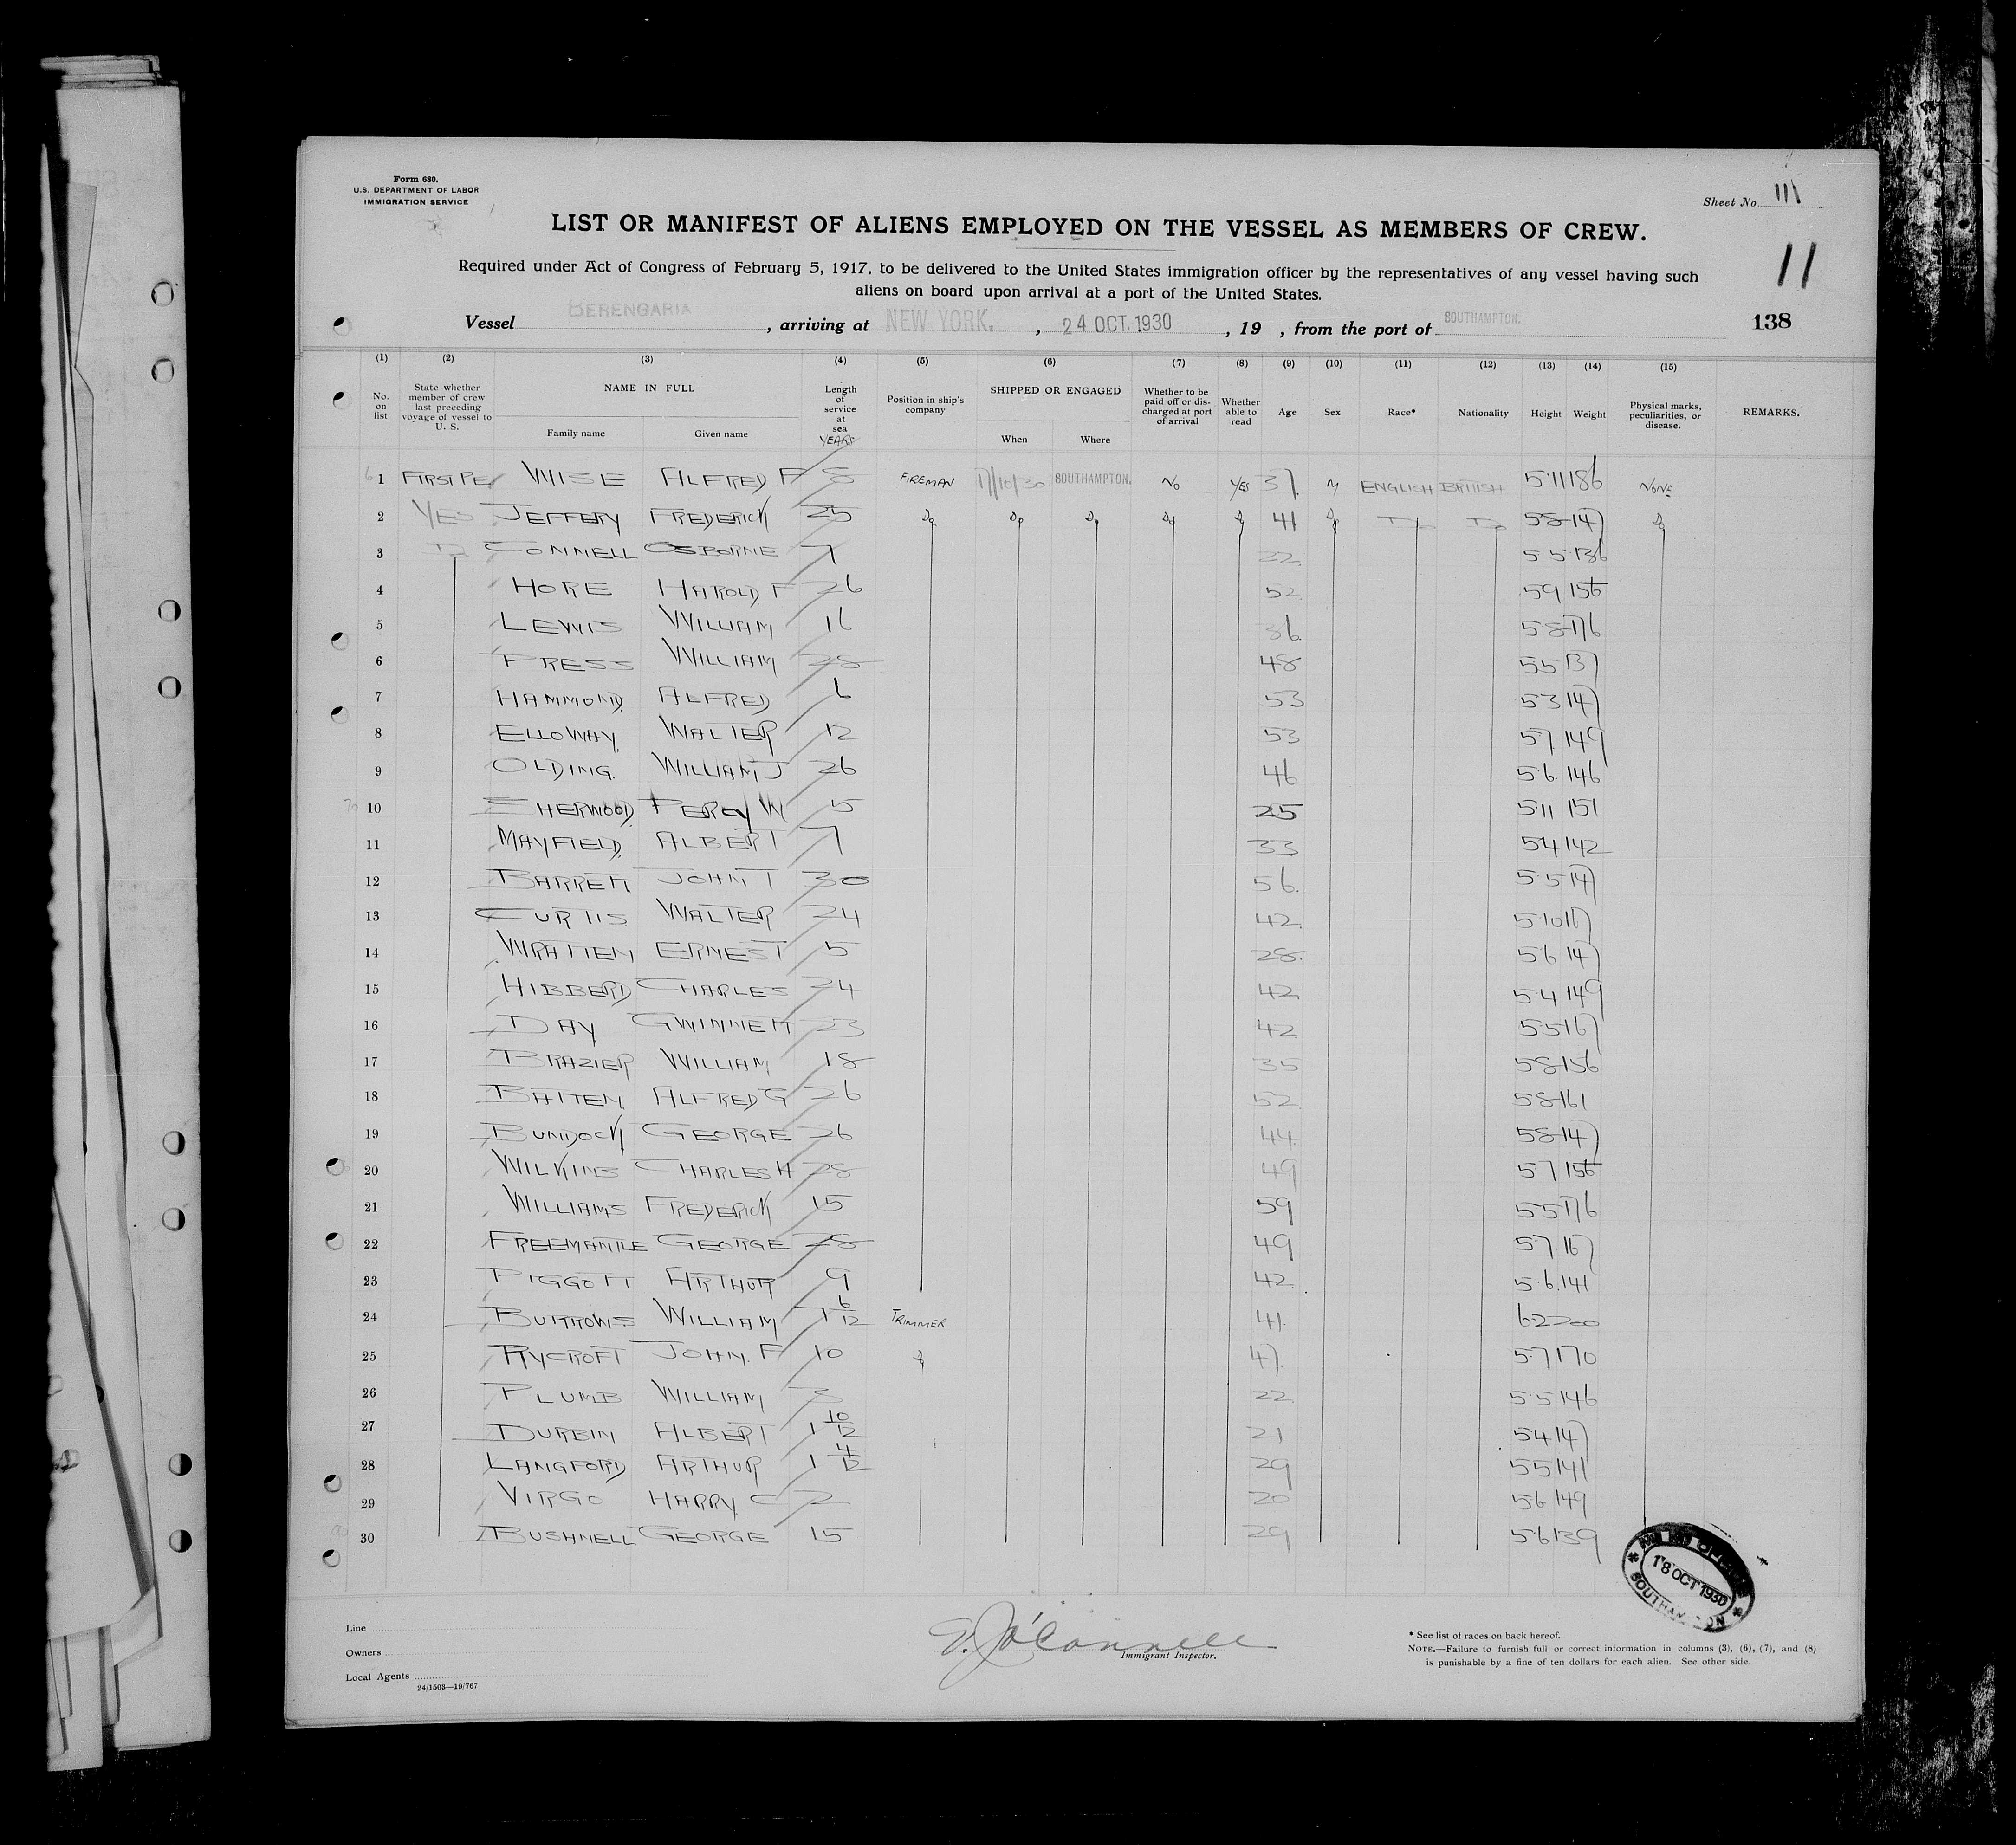 Form 680.
U.S. DEPARTMENT OF LABOR
IMMIGRATION SERVICE
Sheet No. 11
LIST OR MANIFEST OF ALIENS EMPLOYED ON THE VESSEL AS MEMBERS OF CREW.
11
Required under Act of Congress of February 5, 1917, to be delivered to the United States immigration officer by the representatives of any vessel having such
aliens on board upon arrival at a port of the United States.
Vessel BERENGARIA, arriving at NEW YORK., 24 OCT. 1930, 19 , from the port of SOUTHAMPTON.
138
(1) (2) (3) (4) (5) (6) (7) (8) (9) (10) (11) (12) (13) (14) (15)
No. on list State whether member of crew last preceding voyage of vessel to U. S. NAME IN FULL Family name Given name Length of service at sea YEARS Position in ship's company SHIPPED OR ENGAGED When Where Whether to be paid off or discharged at port of arrival Whether able to read Age Sex Race* Nationality Height Weight Physical marks, peculiarities, or disease. REMARKS.
1 WISE ALFRED F 8 FIREMAN 17/10/30 SOUTHAMPTON. NO YES 37 M ENGLISH BRITISH 5-11 186 NONE
2 YES JEFFERY FREDERICK 25 Do Do Do Do Do 41 Do Do Do 5-8 147 Do
3 Do CONNELL OSBORNE 7 22 5 5 136
4 HORE HAROLD F 26 52 5 9 156
5 LEWIS WILLIAM 16 36 5-8 176
6 PRESS WILLIAM 28 48 5 5 137
7 HAMMOND ALFRED 6 53 5 3 147
8 ELLOWAY WALTER 12 53 5 7 149
9 OLDING WILLIAM J 26 46 5-6 146
10 SHERWOOD PERCY W 5 25 5-11 151
11 MAYFIELD ALBERT 7 33 5 4 142
12 BARRETT JOHN T 30 56 5-5 147
13 CURTIS WALTER 24 42 5-10 167
14 WRATTEN ERNEST 5 28 5 6 147
15 HIBBERD CHARLES 24 42 5-4 149
16 DAY GWINNETT 23 42 5-5 167
17 BRAZIER WILLIAM 18 35 5-8 156
18 BATTEN ALFRED G 26 52 5-8 161
19 BUNDOCK GEORGE 26 44 5-8 147
20 WILKINS CHARLES H 28 49 5 7 156
21 WILLIAMS FREDERICK 15 59 5 5 176
22 FREEMANTLE GEORGE 28 49 5-7 167
23 PIGGOTT ARTHUR 9 42 5-6 141
24 BURROWS WILLIAM 7 6/12 TRIMMER 41 6 2 200
25 RYCROFT JOHN. F 10 Do 47 5-7 170
26 PLUMB WILLIAM 3 22 5-5 146
27 DURBIN ALBERT 1 10/12 21 5 4 147
28 LANGFORD ARTHUR 1 4/12 29 5 5 141
29 VIRGO HARRY C 2 20 5 6 149
30 BUSHNELL GEORGE 15 29 5 6 139
18 OCT 1930
SOUTHAMPTON
Line
Owners
Local Agents
24/1503—19/767
O'Connell
Immigrant Inspector.
* See list of races on back hereof.
NOTE.—Failure to furnish full or correct information in columns (3), (6), (7), and (8)
is punishable by a fine of ten dollars for each alien. See other side.